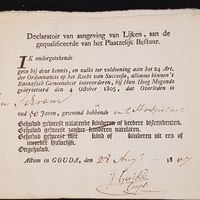 Declaratoir van aangeving van Lijken, aan de
gequalificeerde van het Plaatzelijk Bestuur.
IK ondergetekende
geve bij deze kennis, en zulks ter voldoening aan het 24 Art.
der Ordonnantie op het Recht van Successie, alomme binnen 't
Bataafsch Gemeenebest intevoerderen, bij Hun Hoog Mogende
gearresteerd den 4 October 1805, dat Overleden is
oud Jaren, gewoond hebbende
Gehuwd geweest nalatende kinderen of verdere descendenten.
Gehuwd geweest zonder kinderen natelaten.
Gehuwd geweest met kind of kinderen uit een of
meerder Huwelijk.
Ongehuwd.
Actum in GOUDA, den 28 Aug. 1807